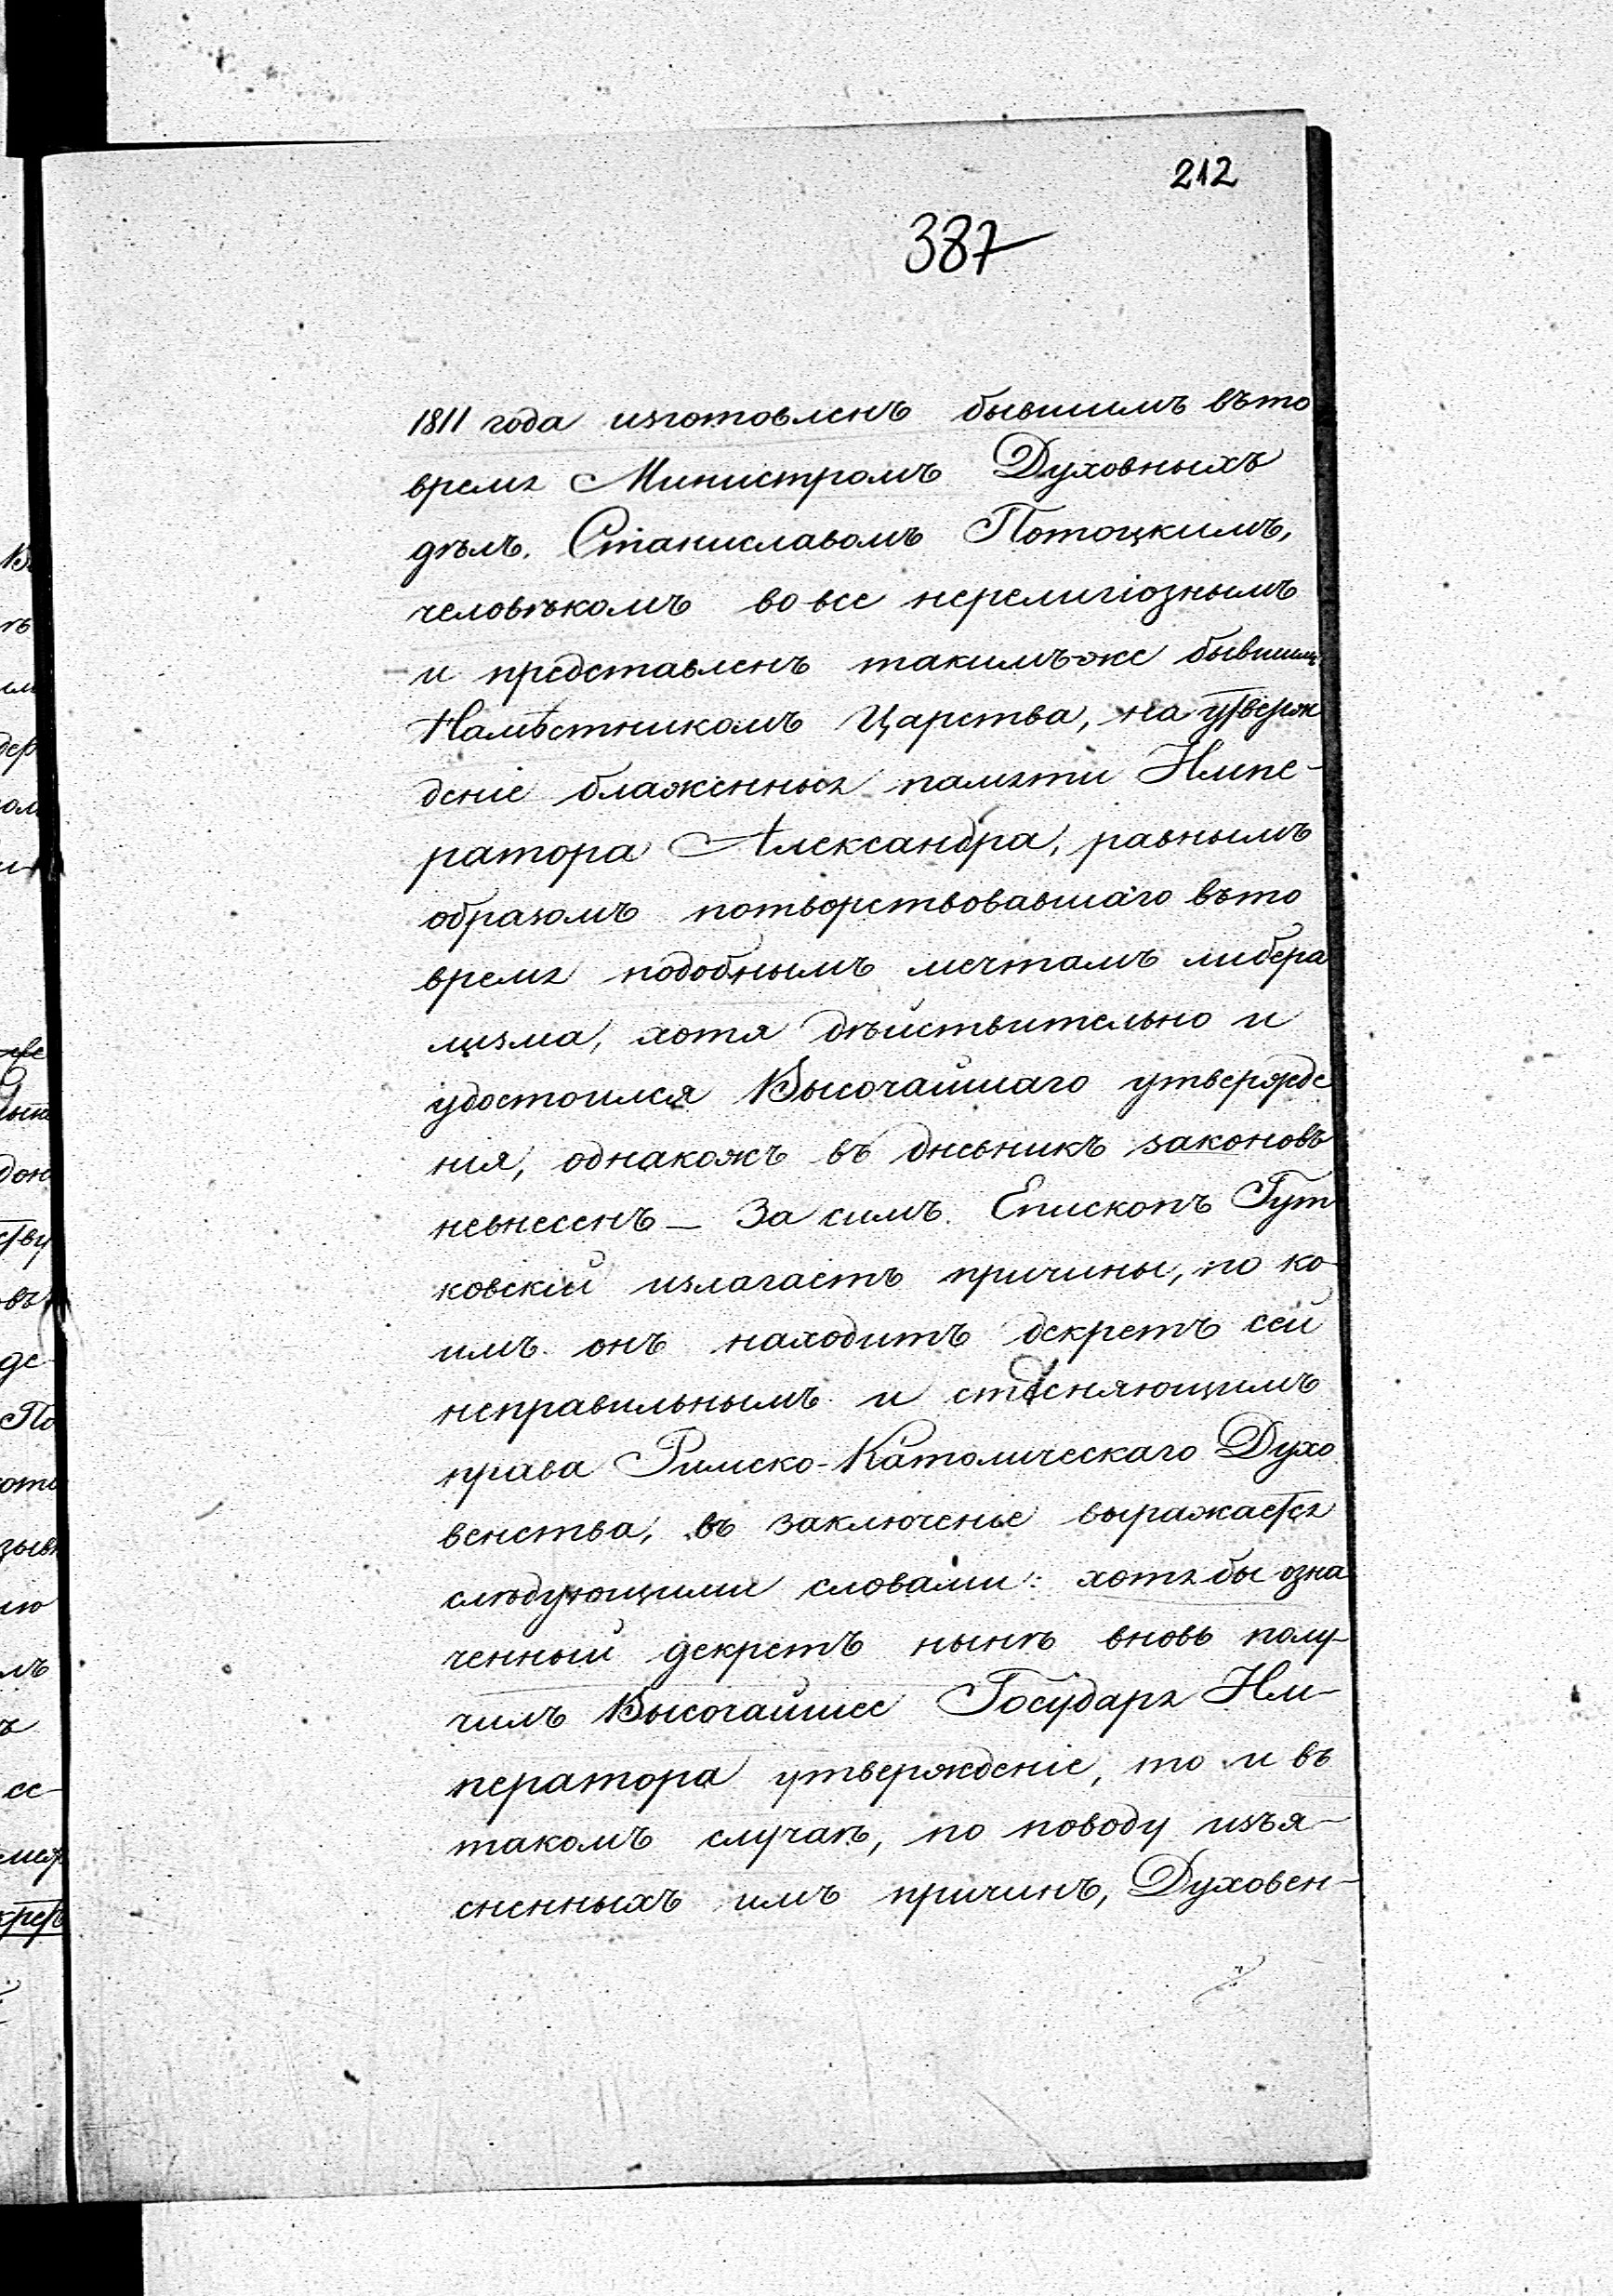 212
387
1811 года изготовленъ бывшимъ въ то
время Министромъ Духовныхъ
дѣлъ. Станиславомъ Потоцкимъ,
человѣкомъ вовсе нерелигіознымъ
и представленъ такимъ же бывшимъ
Намѣстникомъ Царства, на утверж
деніе блаженныя памяти Импе-
ратора Александра, равнымъ
образомъ потворствовавшаго въ то
время подобнымъ мечтамъ либера
лизма, хотя дѣйствительно и
удостоился Высочайшаго утвержде
нія, однакожъ въ дневникъ законовъ
невнесенъ — За симъ. Епископъ Гут
ковскій излагаетъ причины, по ко-
имъ онъ находитъ декретъ сей
неправильнымъ и стѣсняющимъ
права Римско-Католическаго Духо
венства, въ заключеніе выражается
слѣдующими словами: хотя бы озна
ченный декретъ нынѣ вновь полу-
чилъ Высочайшее Государя Им-
ператора утвержденіе, то и въ
такомъ случаѣ, по поводу изъя-
сненныхъ имъ причинъ, Духовен-